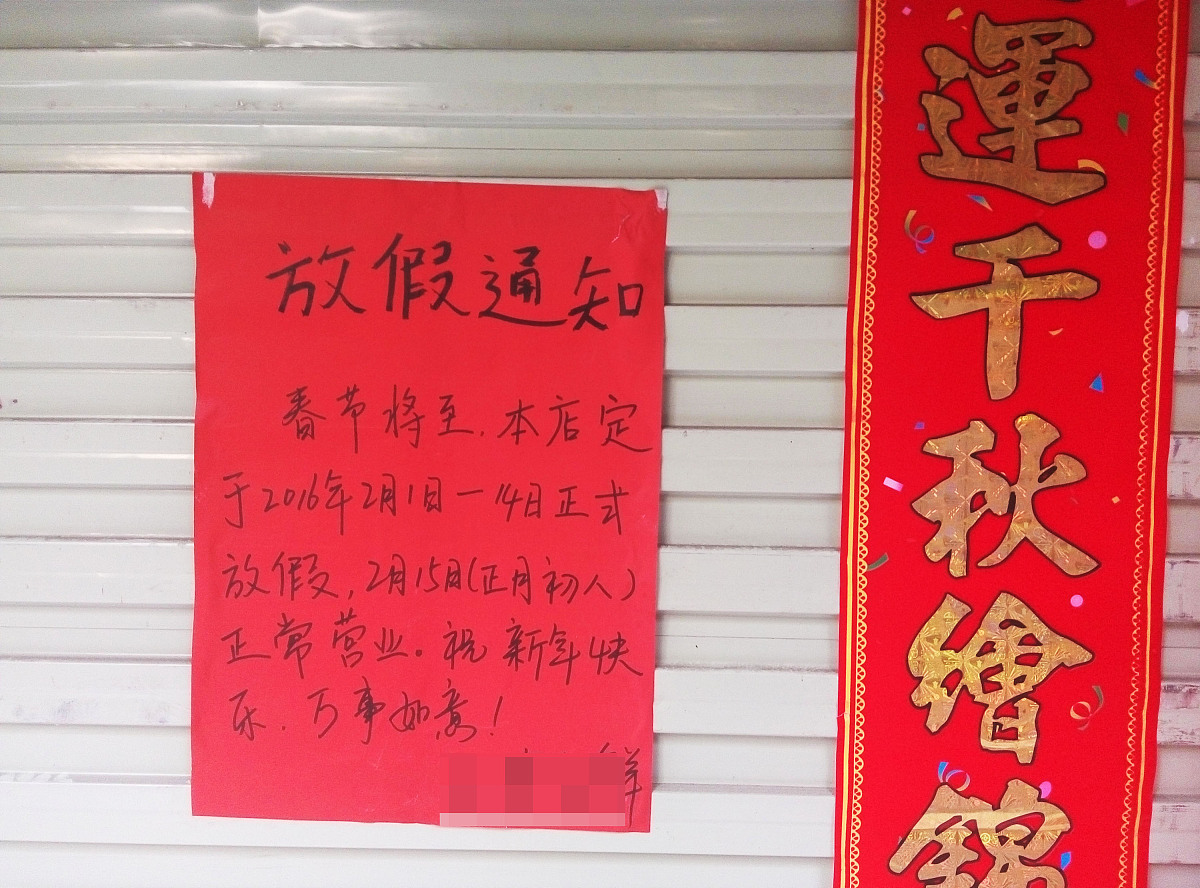 放假通知
春节将至.本店定
于2016年2月1日一14日正式
放假,2月15日(正月初八)
正常营业。祝新年快
乐.万事如意!
鲜
運千秋繪錦